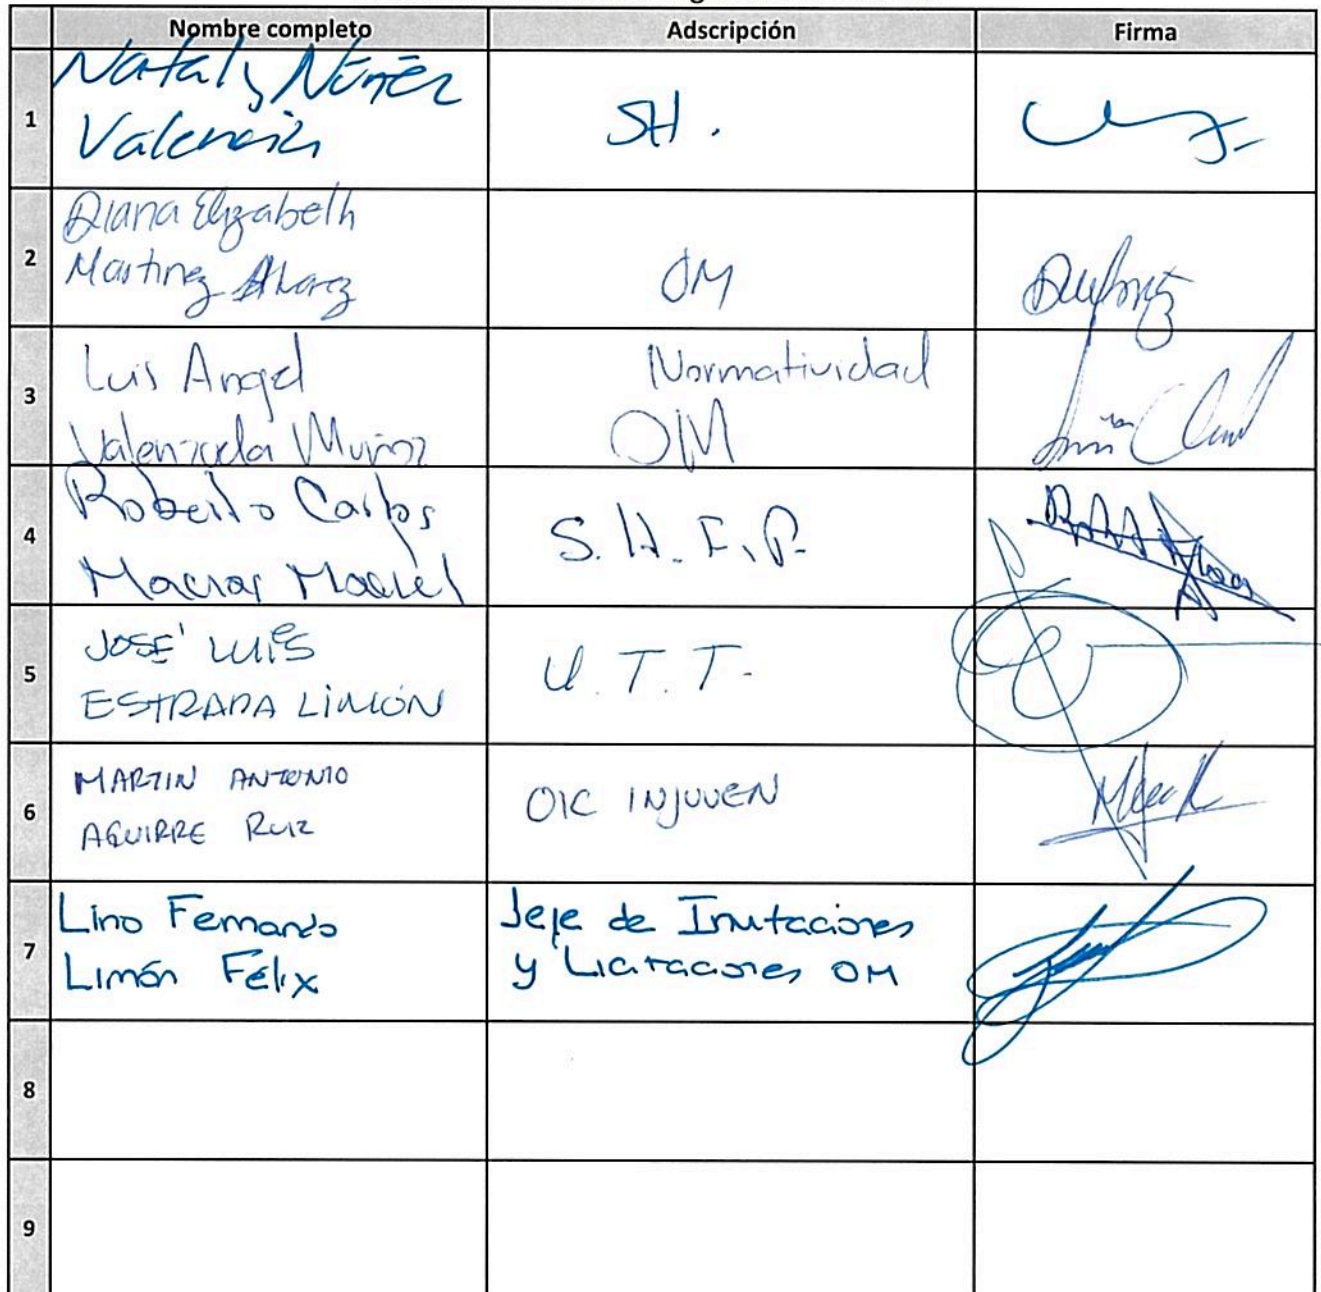 Nombre completo Adscripción Firma
1
Nataly Núñez
Valencia
SH.
2
Diana Elizabeth
Martinez Alvarez
OM
3
Luis Angel
Valenzuela Muñoz
Normatividad
OM
4
Roberto Carlos
Macias
S.H.F.P.
5
JOSÉ LUIS
ESTRADA LIMÓN
U.T.T.
6
MARTIN ANTONIO
AGUIRRE RUIZ
OIC INJUVEN
7
Lino Fernando
Limón Félix
Jefe de Invitaciones
y Licitaciones OM
8
9